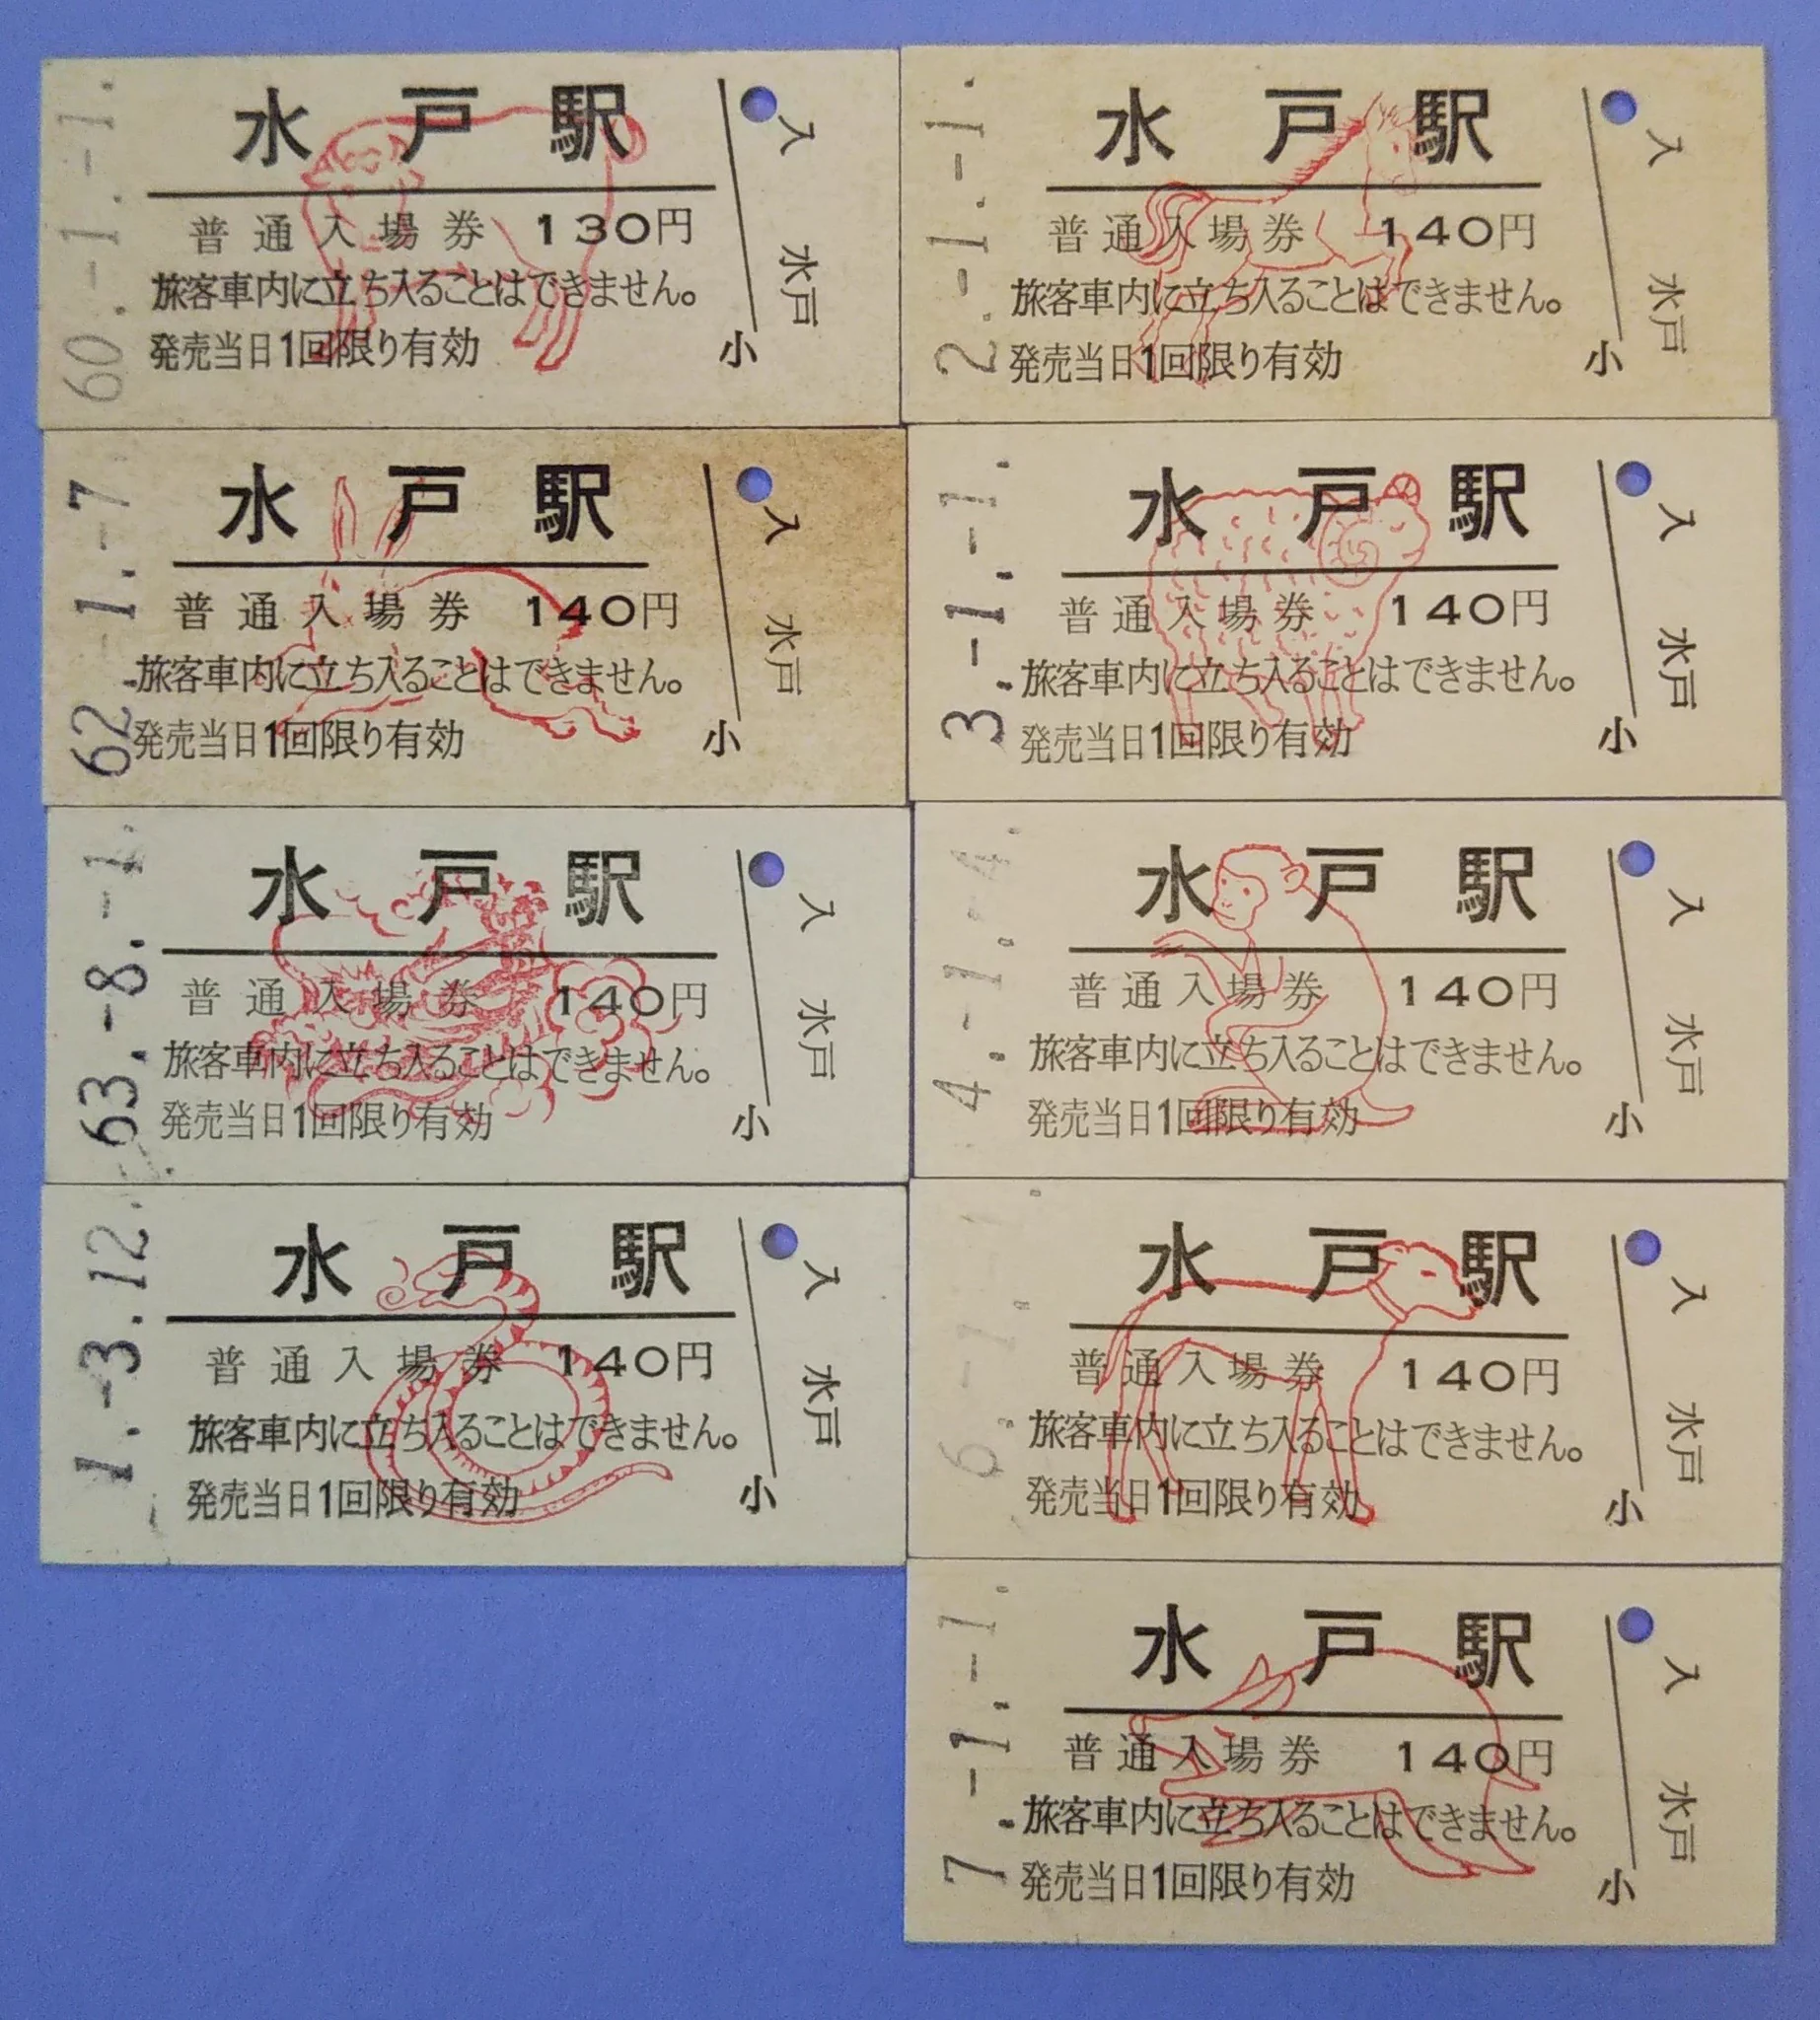 60.-1.-1.
水戸駅
普通入場券 130円
旅客車内に立ち入ることはできません。
発売当日1回限り有効
入 水戸
小
62.-1.-7
水戸駅
普通入場券 140円
旅客車内に立ち入ることはできません。
発売当日1回限り有効
入 水戸
小
63.-8.-1.
水戸駅
普通入場券 140円
旅客車内に立ち入ることはできません。
発売当日1回限り有効
入 水戸
小
1.-3.12.
水戸駅
普通入場券 140円
旅客車内に立ち入ることはできません。
発売当日1回限り有効
入 水戸
小
2.-1.-1.
水戸駅
普通入場券 140円
旅客車内に立ち入ることはできません。
発売当日1回限り有効
入 水戸
小
3.-1.-1.
水戸駅
普通入場券 140円
旅客車内に立ち入ることはできません。
発売当日1回限り有効
入 水戸
小
4.-1.-4.
水戸駅
普通入場券 140円
旅客車内に立ち入ることはできません。
発売当日1回限り有効
入 水戸
小
6.-1.-1.
水戸駅
普通入場券 140円
旅客車内に立ち入ることはできません。
発売当日1回限り有効
入 水戸
小
7.-1.-1.
水戸駅
普通入場券 140円
旅客車内に立ち入ることはできません。
発売当日1回限り有効
入 水戸
小